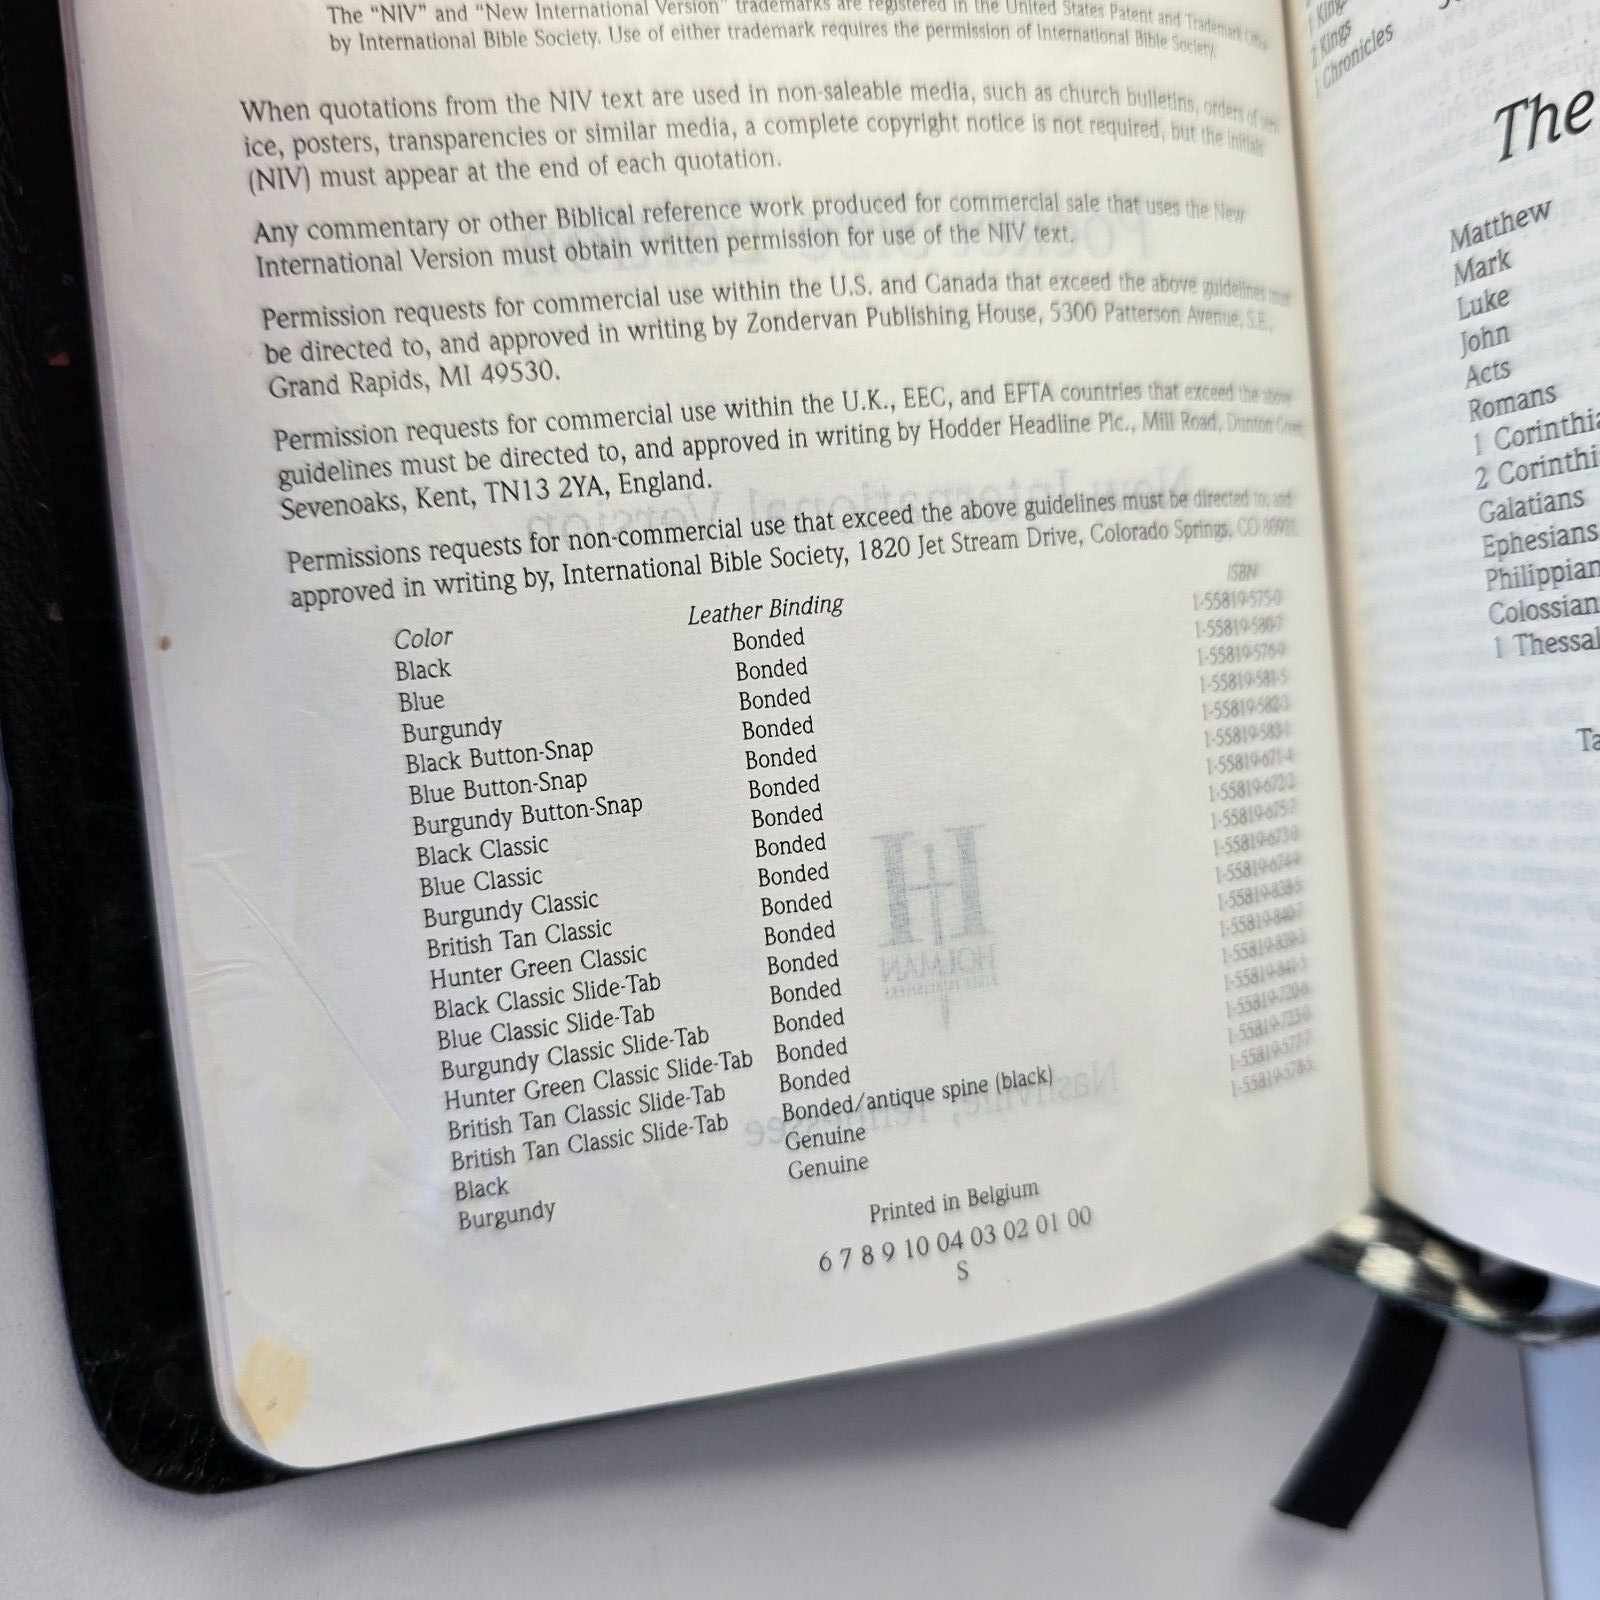 The “NIV” and “New International Version” trademarks are registered in the United States Patent and Trademark Office
by International Bible Society. Use of either trademark requires the permission of International Bible Society.
When quotations from the NIV text are used in non-saleable media, such as church bulletins, orders of
ice, posters, transparencies or similar media, a complete copyright notice is not required, but the initials
(NIV) must appear at the end of each quotation.
Any commentary or other Biblical reference work produced for commercial sale that uses the New
International Version must obtain written permission for use of the NIV text.
Permission requests for commercial use within the U.S. and Canada that exceed the above guidelines must
be directed to, and approved in writing by Zondervan Publishing House, 5300 Patterson Avenue, S.E.,
Grand Rapids, MI 49530.
Permission requests for commercial use within the U.K., EEC, and EFTA countries that exceed the above
guidelines must be directed to, and approved in writing by Hodder Headline Plc., Mill Road, Dunton Green,
Sevenoaks, Kent, TN13 2YA, England.
Permissions requests for non-commercial use that exceed the above guidelines must be directed to, and
approved in writing by, International Bible Society, 1820 Jet Stream Drive, Colorado Springs, CO
Color Leather Binding ISBN
Black Bonded 1-55819-575-0
Blue Bonded 1-55819-580-7
Burgundy Bonded 1-55819-576-9
Black Button-Snap Bonded 1-55819-581-5
Blue Button-Snap Bonded 1-55819-582-3
Burgundy Button-Snap Bonded 1-55819-583-1
Black Classic Bonded 1-55819-671-4
Blue Classic Bonded 1-55819-672-2
Burgundy Classic Bonded 1-55819-675-7
British Tan Classic Bonded 1-55819-673-0
Hunter Green Classic Bonded 1-55819-674-9
Black Classic Slide-Tab Bonded 1-55819-838-5
Blue Classic Slide-Tab Bonded 1-55819-840-7
Burgundy Classic Slide-Tab Bonded 1-55819-839-3
Hunter Green Classic Slide-Tab Bonded 1-55819-841-5
British Tan Classic Slide-Tab Bonded
British Tan Classic Slide-Tab Bonded/antique spine (black)
Black Genuine 1-55819-577-7
Burgundy Genuine 1-55819-578-5
Printed in Belgium
6 7 8 9 10 04 03 02 01 00
S
1 Kings
2 Kings
1 Chronicles
The
Matthew
Mark
Luke
John
Acts
Romans
1 Corinthia
2 Corinthi
Galatians
Ephesians
Philippian
Colossian
1 Thessal
Ta